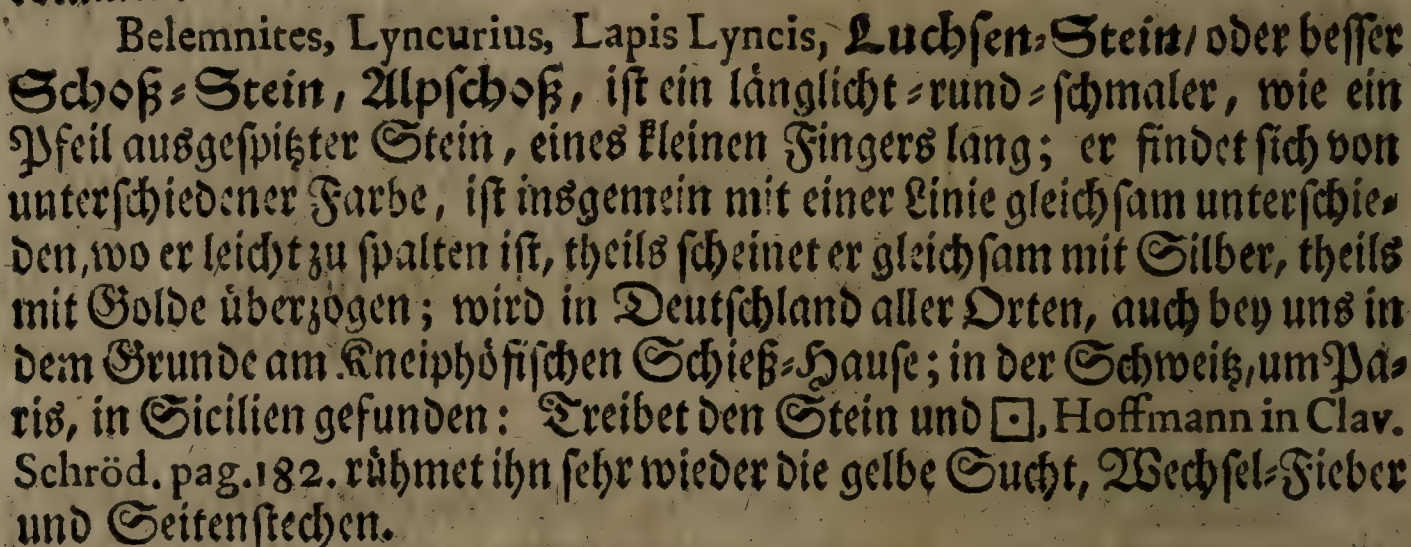 Belemnites, Lyncurius, Lapis Lyncis, Luchsen-Stein/ oder besser
Schoß-Stein, Alpschoß, ist ein länglicht-rund-schmaler, wie ein
Pfeil ausgespitzter Stein, eines kleinen Fingers lang; er findet sich von
unterschiedener Farbe, ist insgemein mit einer Linie gleichsam unterschie-
den, wo er leicht zu spalten ist, theils scheinet er gleichsam mit Silber, theils
mit Golde überzogen; wird in Deutschland aller Orten, auch bey uns in
dem Grunde am Kneiphöfischen Schieß-Hause; in der Schweitz, um Pa-
ris, in Sicilien gefunden: Treibet den Stein und ⊡, Hoffmann in Clav.
Schröd. pag. 182. rühmet ihn sehr wieder die gelbe Sucht, Wechsel-Fieber
und Seitenstechen.